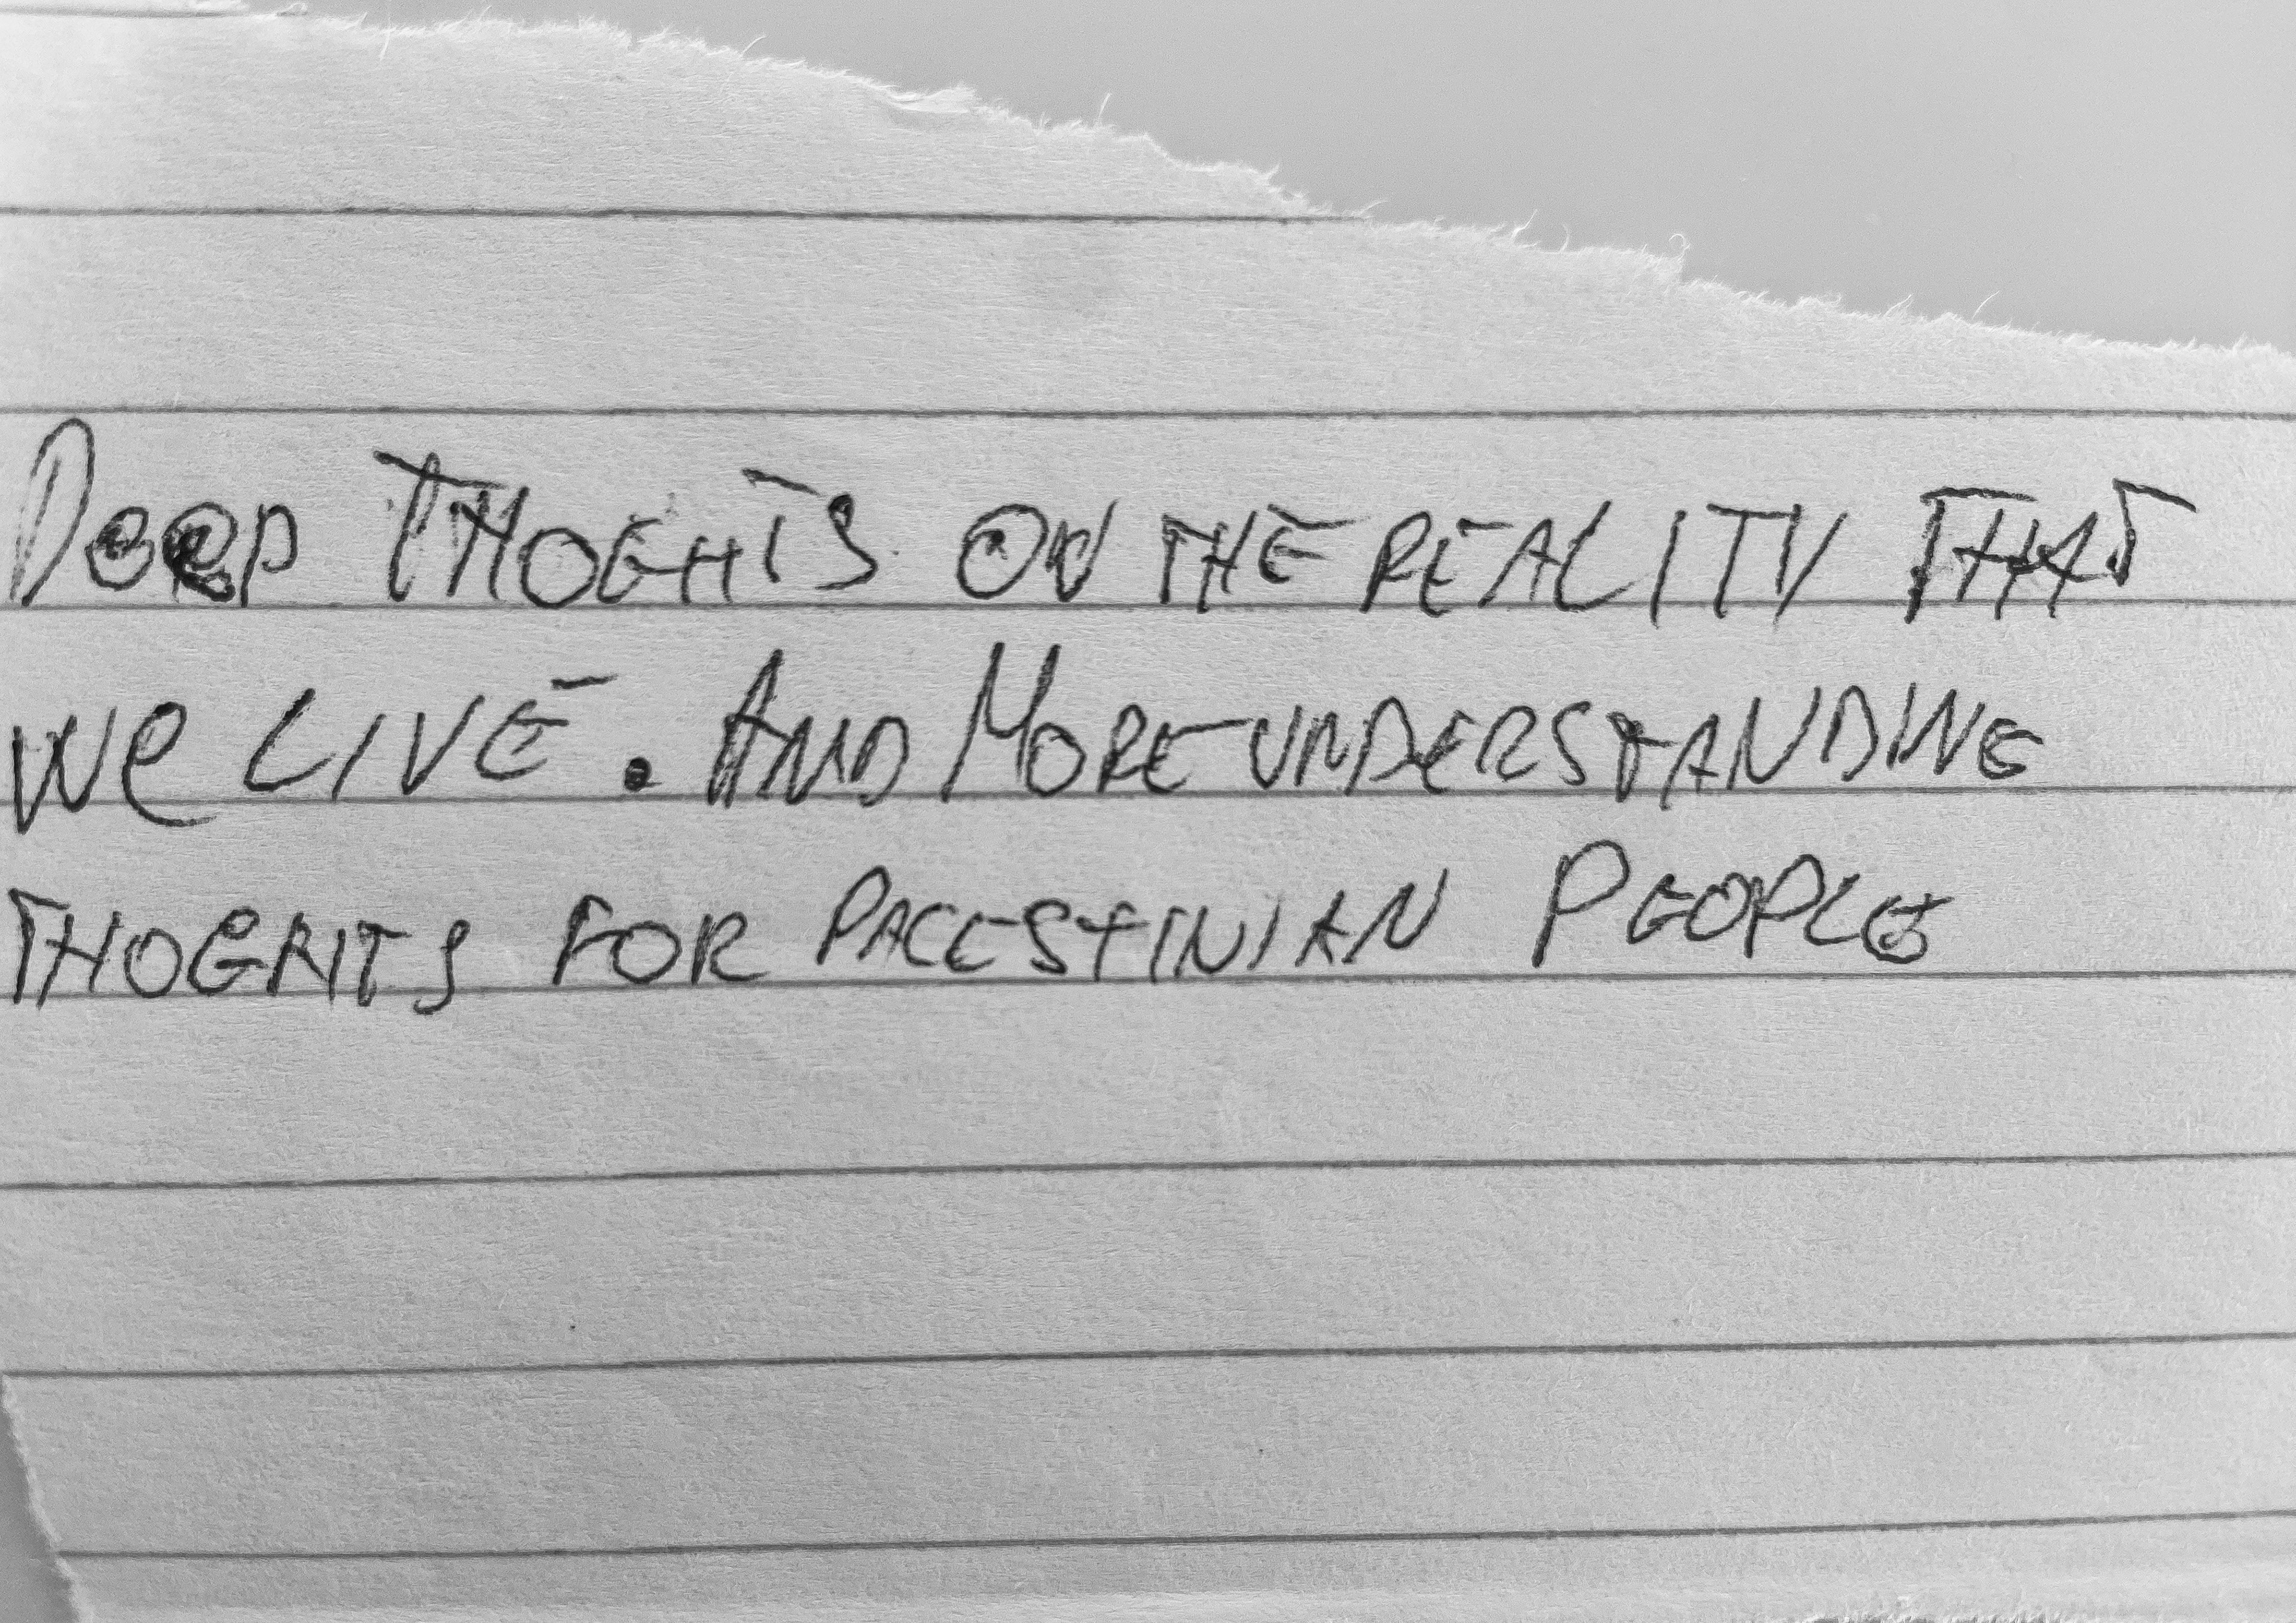 Deep THOGHTS ON THE REALITY THAT
We LIVE. AND MORE UNDERSTANDING
THOGHTS FOR PALESTINIAN PEOPLE